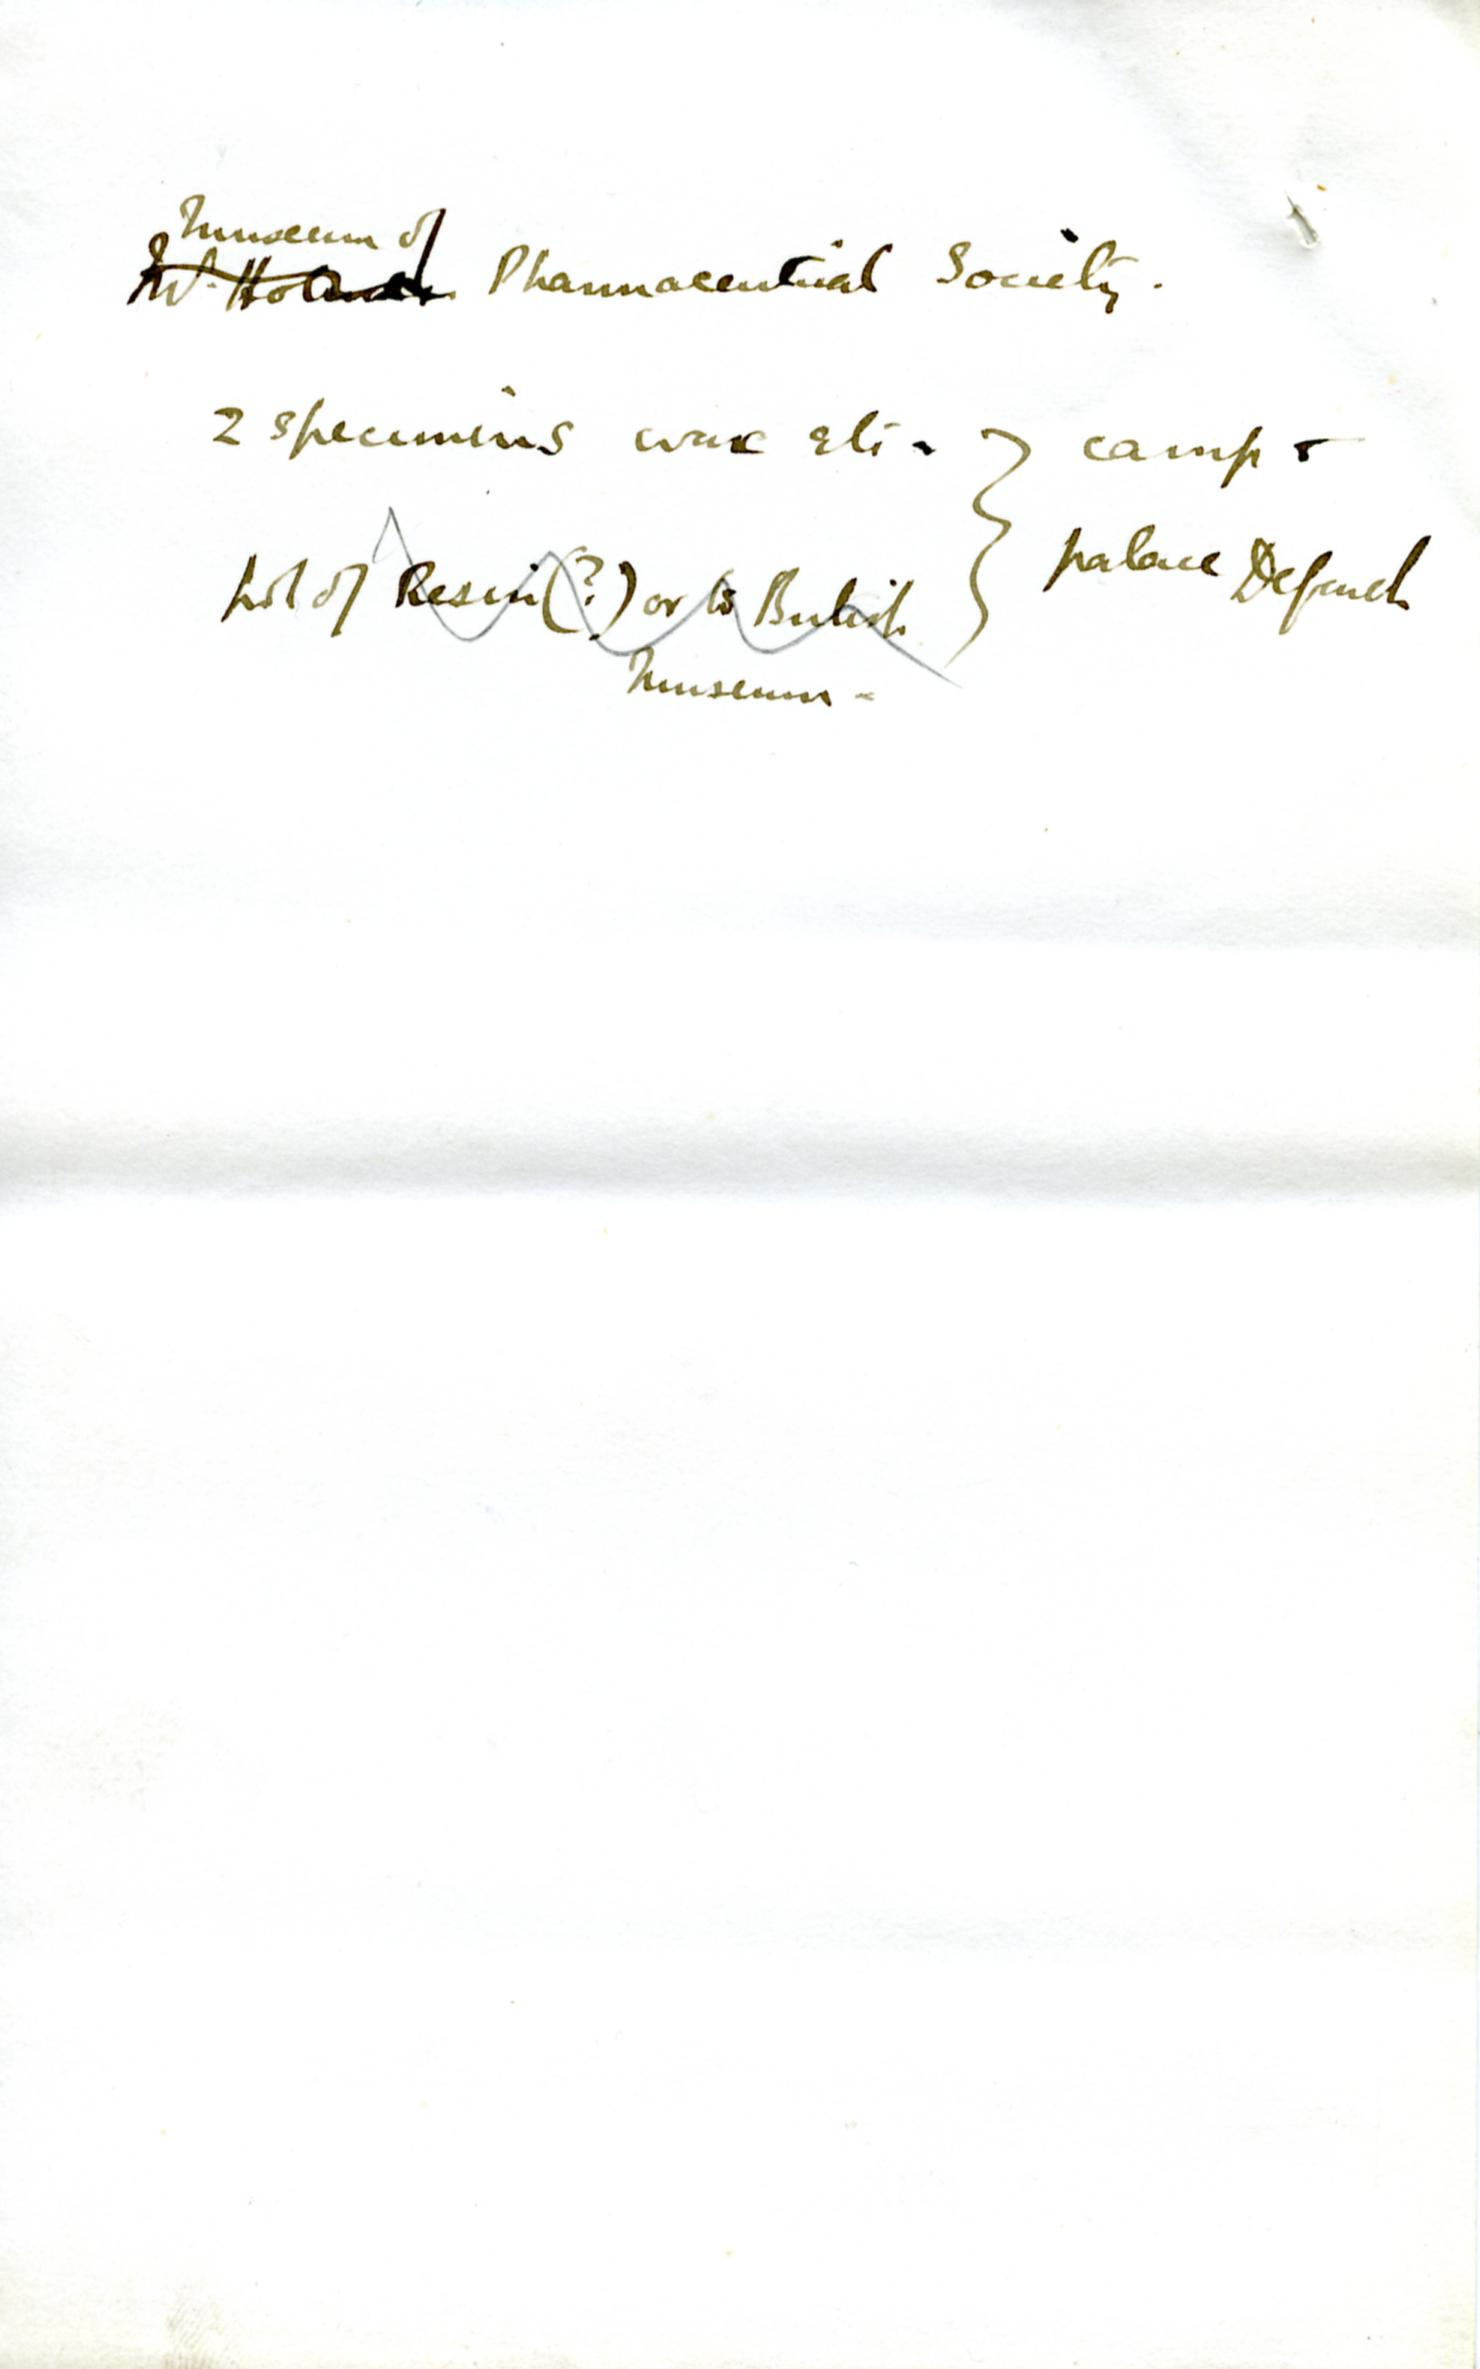 Museum of
Mr. Holmes Pharmaceutical Society.
2 specimens wax etc. } camp &
Pot of Resin (?) or to British } palace Defeneh
Museum -